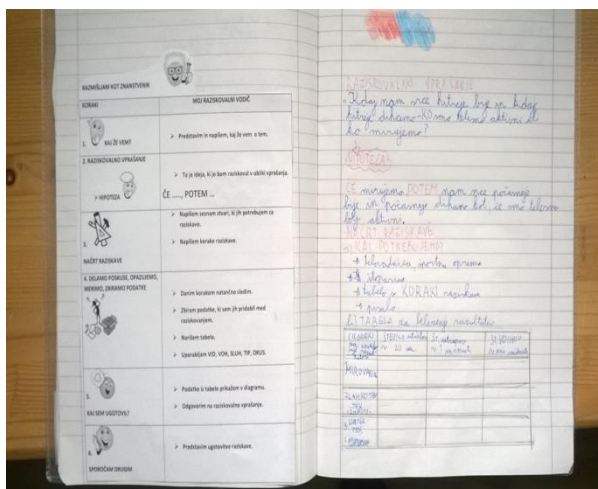 RAZMIŠLJAM KOT ZNANSTVENIK
KORAKI
MOJ RAZISKOVALNI VODIČ
1. KAJ ŽE VEM?
➢ Predstavim in napišem, kaj že vem o tem.
2. RAZISKOVALNO VPRAŠANJE
➢ To je ideja, ki jo bom raziskoval v obliki vprašanja.
➢ HIPOTEZA
ČE ....., POTEM ...
3.
NAČRT RAZISKAVE
➢ Napišem seznam stvari, ki jih potrebujem za
raziskavo.
➢ Napišem korake raziskave.
4. DELAMO POSKUSE, OPAZUJEMO,
MERIMO, ZBIRAMO PODATKE
➢ Danim korakom natančno sledim.
➢ Zbiram podatke, ki sem jih pridobil med
raziskovanjem.
➢ Narišem tabelo.
➢ Uporabljam VID, VOH, SLUH, TIP, OKUS.
5.
KAJ SEM UGOTOVIL?
➢ Podatke iz tabele prikažem v diagramu.
➢ Odgovorim na raziskovalno vprašanje.
6.
SPOROČAM DRUGIM
➢ Predstavim ugotovitve raziskave.
RAZISKOVALNO VPRAŠANJE
Kdaj nam srce hitreje bije in kdaj
hitreje dihamo - KO smo telesno aktivni ali
ko mirujemo?
HIPOTEZA
ČE mirujemo POTEM nam srce počasneje
bije in počasneje dihamo kot, če smo telesno
bolj aktivni.
NAČRT RAZISKAVE
KAJ POTREBUJEMO?
→ telovadnica, športna oprema
→ štoparica
→ tabela s KORAKI raziskave
→ pisalo
b.) TABELA za beleženje rezultatov
KORAKI
ŠTEVILO
MIROVANJE
TEK
TEK